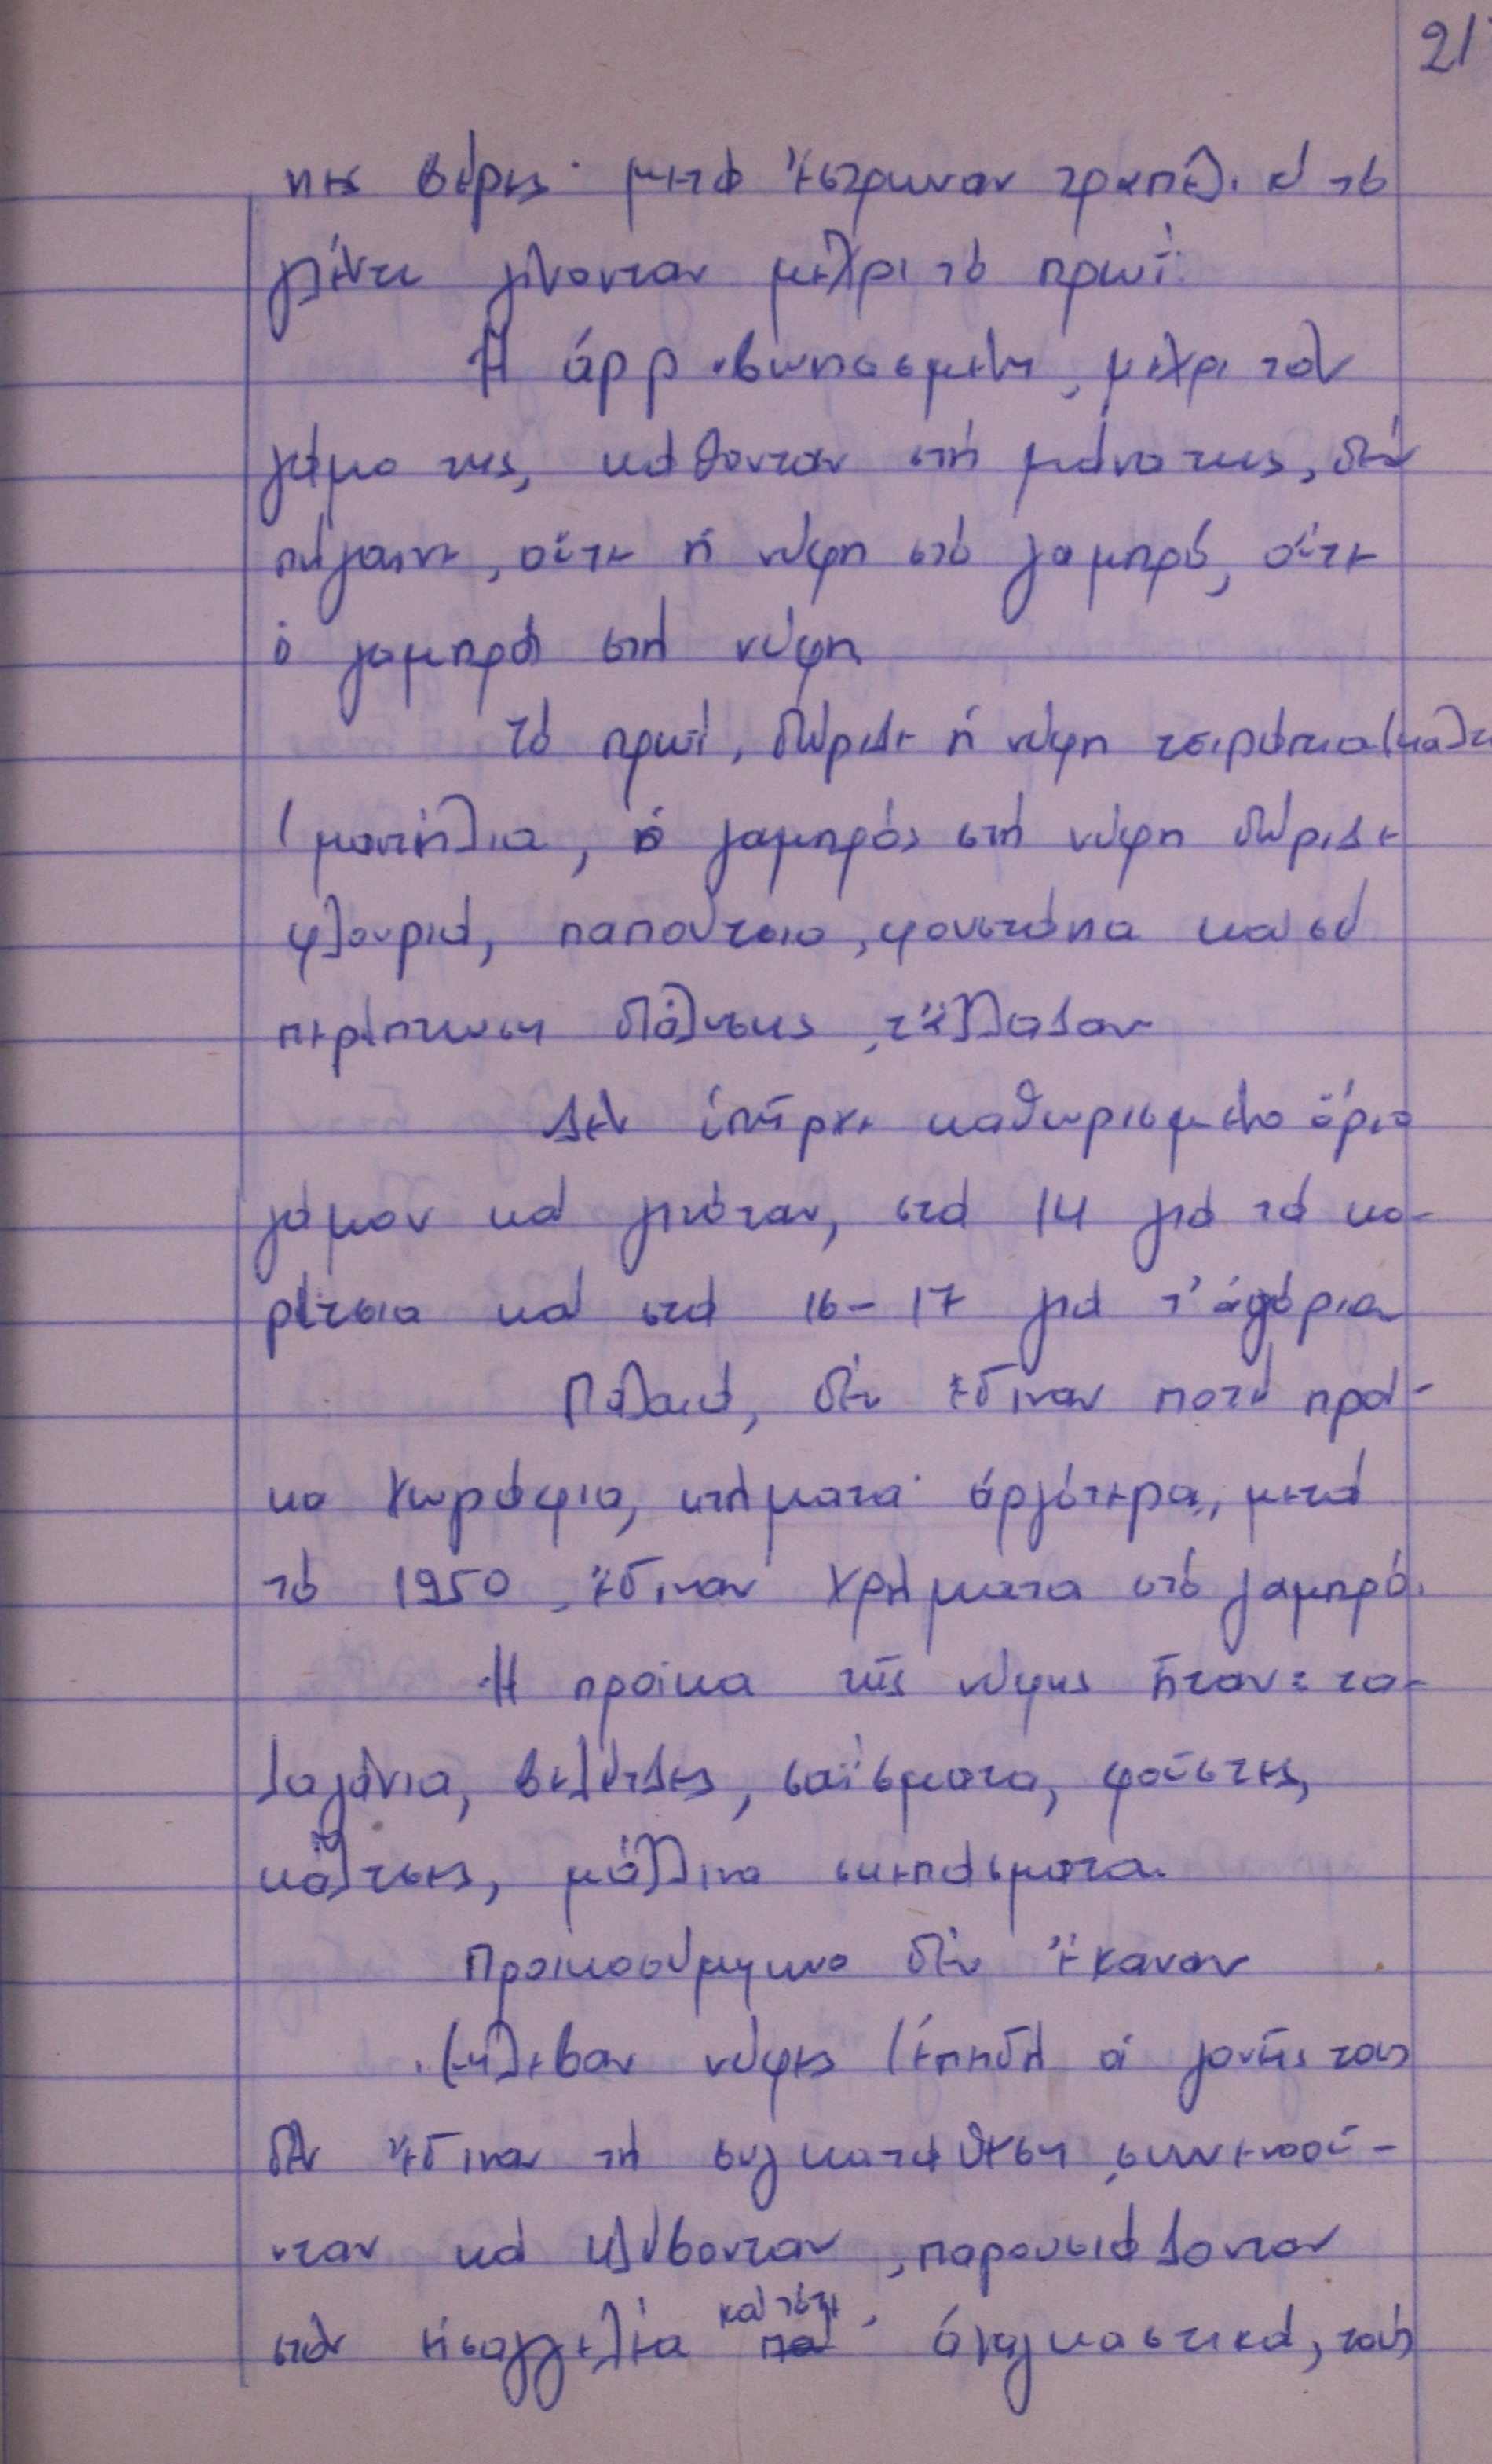 21
τις βέρες· μετά ἔστρωναν τραπέζι κι τό
γλέντι γίνονταν μέχρι τό πρωΐ.
Ἡ ἀρρ βωνιασμένη, μέχρι τόν
γάμο της, κάθονταν στή μάνα της, δέν
πήγαινε, οὔτε ἡ νύφη στό γαμπρό, οὔτε
ὁ γαμπρός στή νύφη
Τό πρωί, δώριζε ἡ νύφη τσιράπια (κάλτσες
(μαντήλια, ὁ γαμπρός στή νύφη δώριζε
φλουριά, παπούτσια, φουστάνια καί σέ
περίπτωση διάλυσης, τἄλλαζαν
Δέν ὑπῆρχε καθωρισμένο ὅριο
γάμου καί γινόταν, στά 14 γιά τά κο-
ρίτσια καί στά 16-17 γιά τ' ἀγόρια
Παλαιά, δέν ἔδιναν ποτέ προί-
κα χωράφια, κτήματα· ἀργότερα, μετά
τό 1950, ἔδιναν χρήματα στό γαμπρό.
Ἡ προίκα τῆς νύφης ἦταν: τα-
ζαγάνια, βελέτζες, σαΐσματα, φοῦστες,
κάλτσες, μάλλινα σκεπάσματα.
Προικοσύμφωνο δέν ἔκαναν
Ἔκλεβαν νύφες (ἐπειδή οἱ γονεῖς τους
δέν ἔδιναν τή συγκατάθεση, συνενοοῦ-
νταν καί κλέβονταν, παρουσιάζονταν
στόν εἰσαγγελέα καί τότε, ἀναγκαστικά, τούς